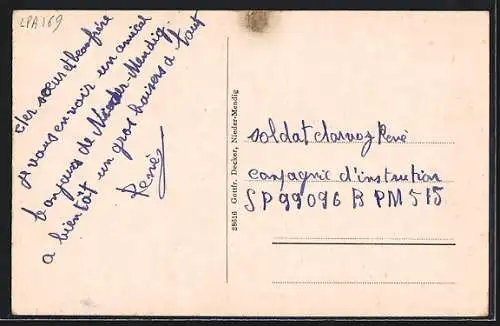 LPA169
cher soeur et beau frère
je vous envoir un amical
bonjours de Nieder Mendig
a bientôt un gros baisers a tout
René
28616 Gottfr. Decker, Nieder-Mendig
soldat René
compagnie d'instrution
SP 99096 BPM 515